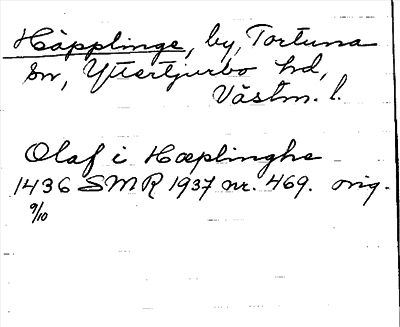 Häpplinge, by, Tortuna
sn, Yttertjurbo hd,
Västm. l.
Olaf i Hæplinghe
1436 SMR 1937 nr. 469. orig.
9/10